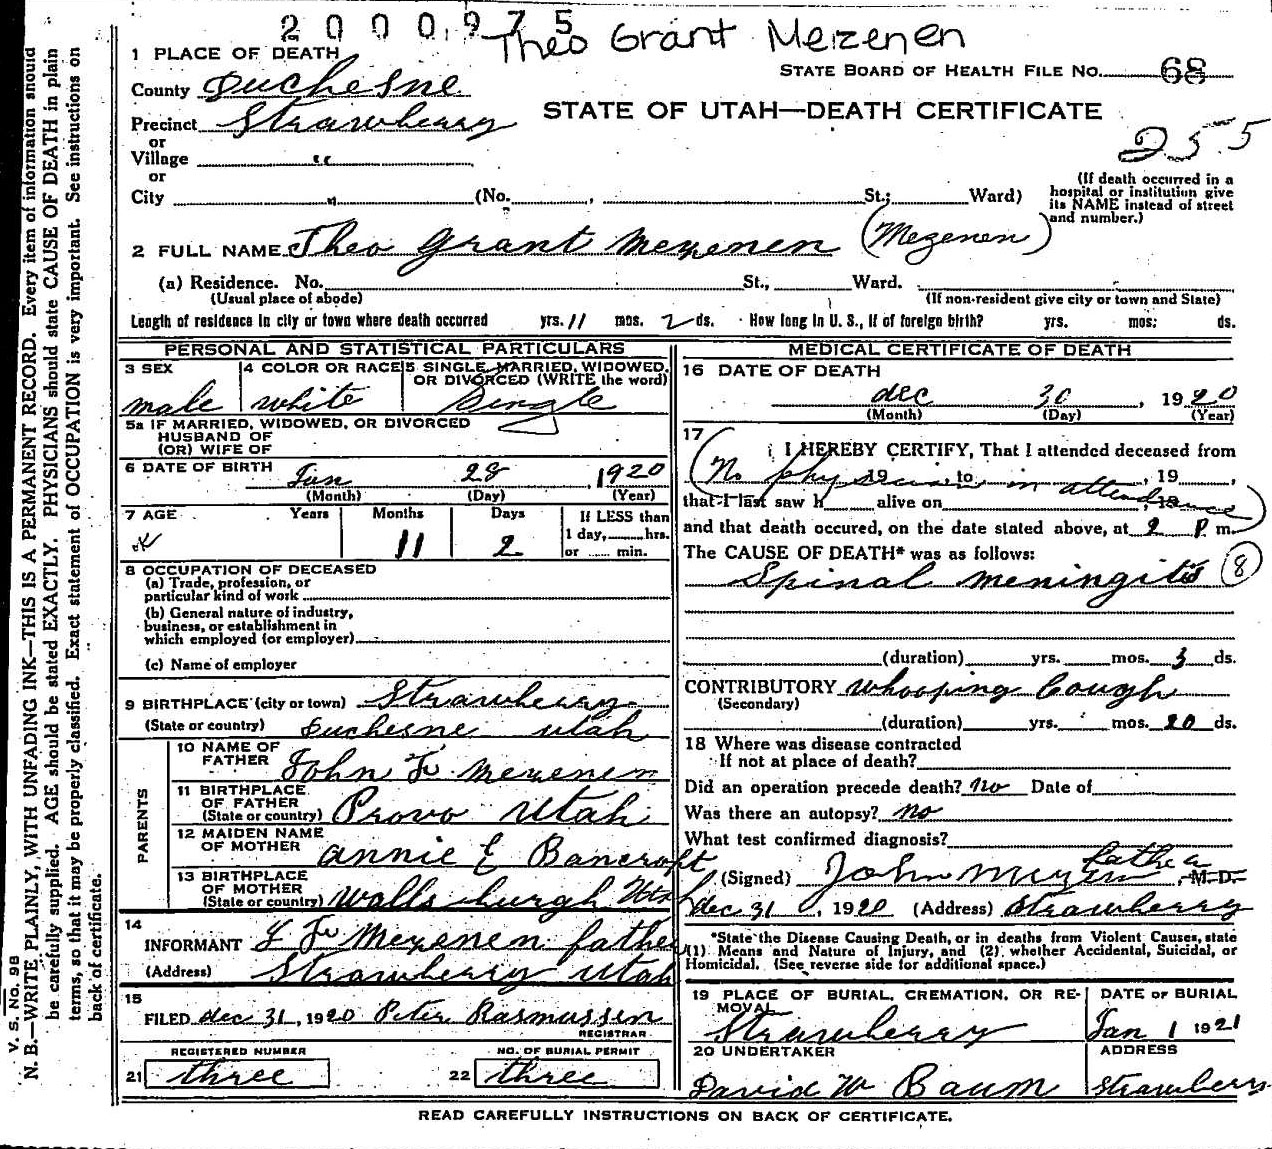 2000975
Theo Grant Meizenen
1 PLACE OF DEATH
STATE BOARD OF HEALTH FILE NO. 68
County Duchesne
STATE OF UTAH—DEATH CERTIFICATE
Precinct Strawberry
255
or
Village "
or
City " (No. , St.; Ward)
(If death occurred in a
hospital or institution give
its NAME instead of street
and number.)
2 FULL NAME Theo Grant Mezenen (Mezenen)
(a) Residence. No. St., Ward.
(Usual place of abode) (If non-resident give city or town and State)
Length of residence in city or town where death occurred yrs. 11 mos. 2 ds. How long in U. S., if of foreign birth? yrs. mos. ds.
PERSONAL AND STATISTICAL PARTICULARS
3 SEX male
4 COLOR OR RACE white
5 SINGLE, MARRIED, WIDOWED,
OR DIVORCED (WRITE the word)
Single
5a IF MARRIED, WIDOWED, OR DIVORCED
HUSBAND OF
(OR) WIFE OF
6 DATE OF BIRTH Jan 28, 1920
(Month) (Day) (Year)
7 AGE Years Months Days If LESS than
11 2 1 day, hrs.
or min.
8 OCCUPATION OF DECEASED
(a) Trade, profession, or
particular kind of work
(b) General nature of industry,
business, or establishment in
which employed (or employer)
(c) Name of employer
9 BIRTHPLACE (city or town) Strawberry
(State or country) Duchesne Utah
PARENTS
10 NAME OF
FATHER John F Mezenen
11 BIRTHPLACE
OF FATHER
(State or country) Provo Utah
12 MAIDEN NAME
OF MOTHER Annie E Bancroft
13 BIRTHPLACE
OF MOTHER
(State or country) Wallsburgh Utah
14
INFORMANT J F Mezenen father
(Address) Strawberry Utah
15
FILED Dec 31, 1920 Peter Rasmussen
REGISTRAR
REGISTERED NUMBER NO. OF BURIAL PERMIT
21 three 22 three
MEDICAL CERTIFICATE OF DEATH
16 DATE OF DEATH
Dec 30, 1920
(Month) (Day) (Year)
17
I HEREBY CERTIFY, That I attended deceased from
(No physician in attendance)
19 to , 19 ,
that I last saw h alive on , 19
and that death occured, on the date stated above, at 2 P. m.
The CAUSE OF DEATH* was as follows:
Spinal meningitis 8
(duration) yrs. mos. 3 ds.
CONTRIBUTORY Whooping Cough
(Secondary)
(duration) yrs. mos. 20 ds.
18 Where was disease contracted
If not at place of death?
Did an operation precede death? No Date of
Was there an autopsy? No
What test confirmed diagnosis?
father
(Signed) John Mezenen, M. D.
Dec 31, 1920 (Address) Strawberry
*State the Disease Causing Death, or in deaths from Violent Causes, state
(1) Means and Nature of Injury, and (2) whether Accidental, Suicidal, or
Homicidal. (See reverse side for additional space.)
19 PLACE OF BURIAL, CREMATION, OR RE-
MOVAL
Strawberry
DATE OF BURIAL
Jan 1 1921
20 UNDERTAKER
David W Baum
ADDRESS
Strawberry
READ CAREFULLY INSTRUCTIONS ON BACK OF CERTIFICATE.
V. S. No. 98
N. B.—WRITE PLAINLY, WITH UNFADING INK—THIS IS A PERMANENT RECORD. Every item of information should
be carefully supplied. AGE should be stated EXACTLY. PHYSICIANS should state CAUSE OF DEATH in plain
terms, so that it may be properly classified. Exact statement of OCCUPATION is very important. See instructions on
back of certificate.